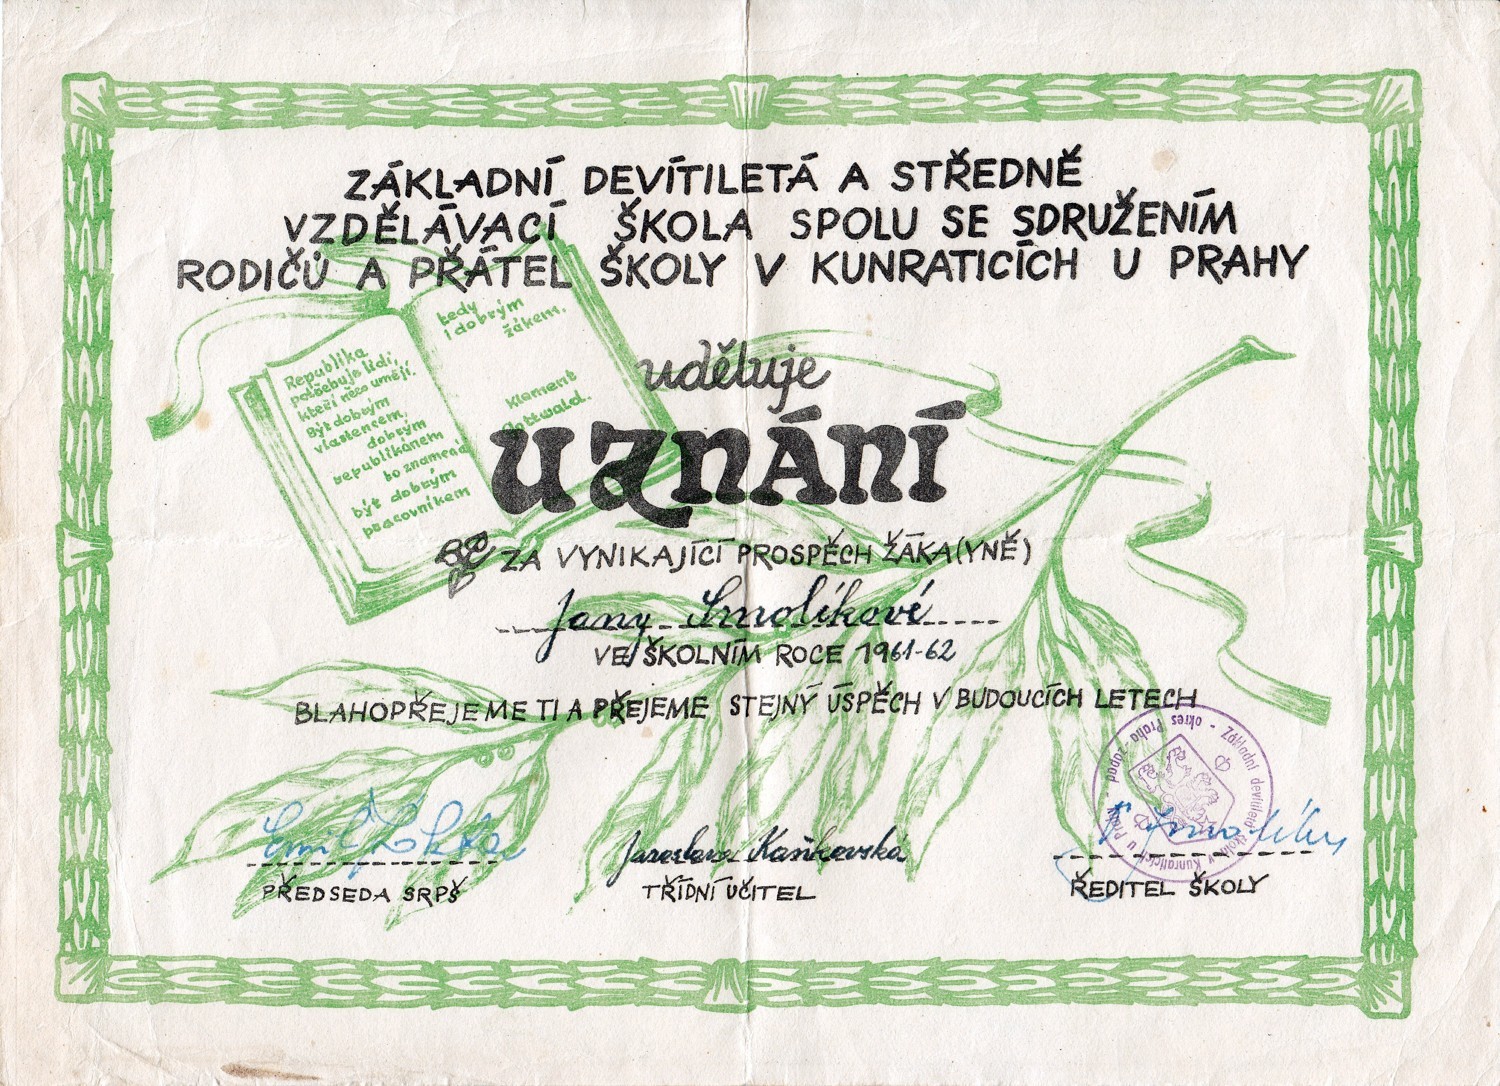 ZÁKLADNÍ DEVÍTILETÁ A STŘEDNĚ
VZDĚLÁVACÍ ŠKOLA SPOLU SE SDRUŽENÍM
RODIČŮ A PŘÁTEL ŠKOLY V KUNRATICÍCH U PRAHY
Republika
potřebuje lidi,
kteří něco umějí.
Být dobrým
vlastencem,
dobrým
republikánem
to znamená
být dobrým
pracovníkem
tedy
i dobrým
žákem.
Klement
Gottwald.
uděluje
UZNÁNÍ
ZA VYNIKAJÍCÍ PROSPĚCH ŽÁKA(YNĚ)
Jany Smolíkové
VE ŠKOLNÍM ROCE 1961-62
BLAHOPŘEJEME TI A PŘEJEME STEJNÝ ÚSPĚCH V BUDOUCÍCH LETECH
Základní devítiletá škola v Kunraticích u Prahy - okres Praha západ -
Emil
PŘEDSEDA SRPŠ
Jaroslava Kaňkovská
TŘÍDNÍ UČITEL
ŘEDITEL ŠKOLY